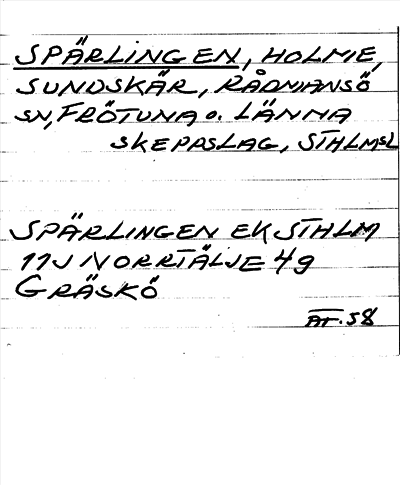 SPÄRLINGEN, HOLME,
SUNDSKÄR, RÅDMANSÖ
SN, FRÖTUNA o. LÄNNA
SKEPPSLAG, STHLMSL
SPÄRLINGEN EK STHLM
11J NORRTÄLJE 4g
GRÄSKÖ
AT. 58